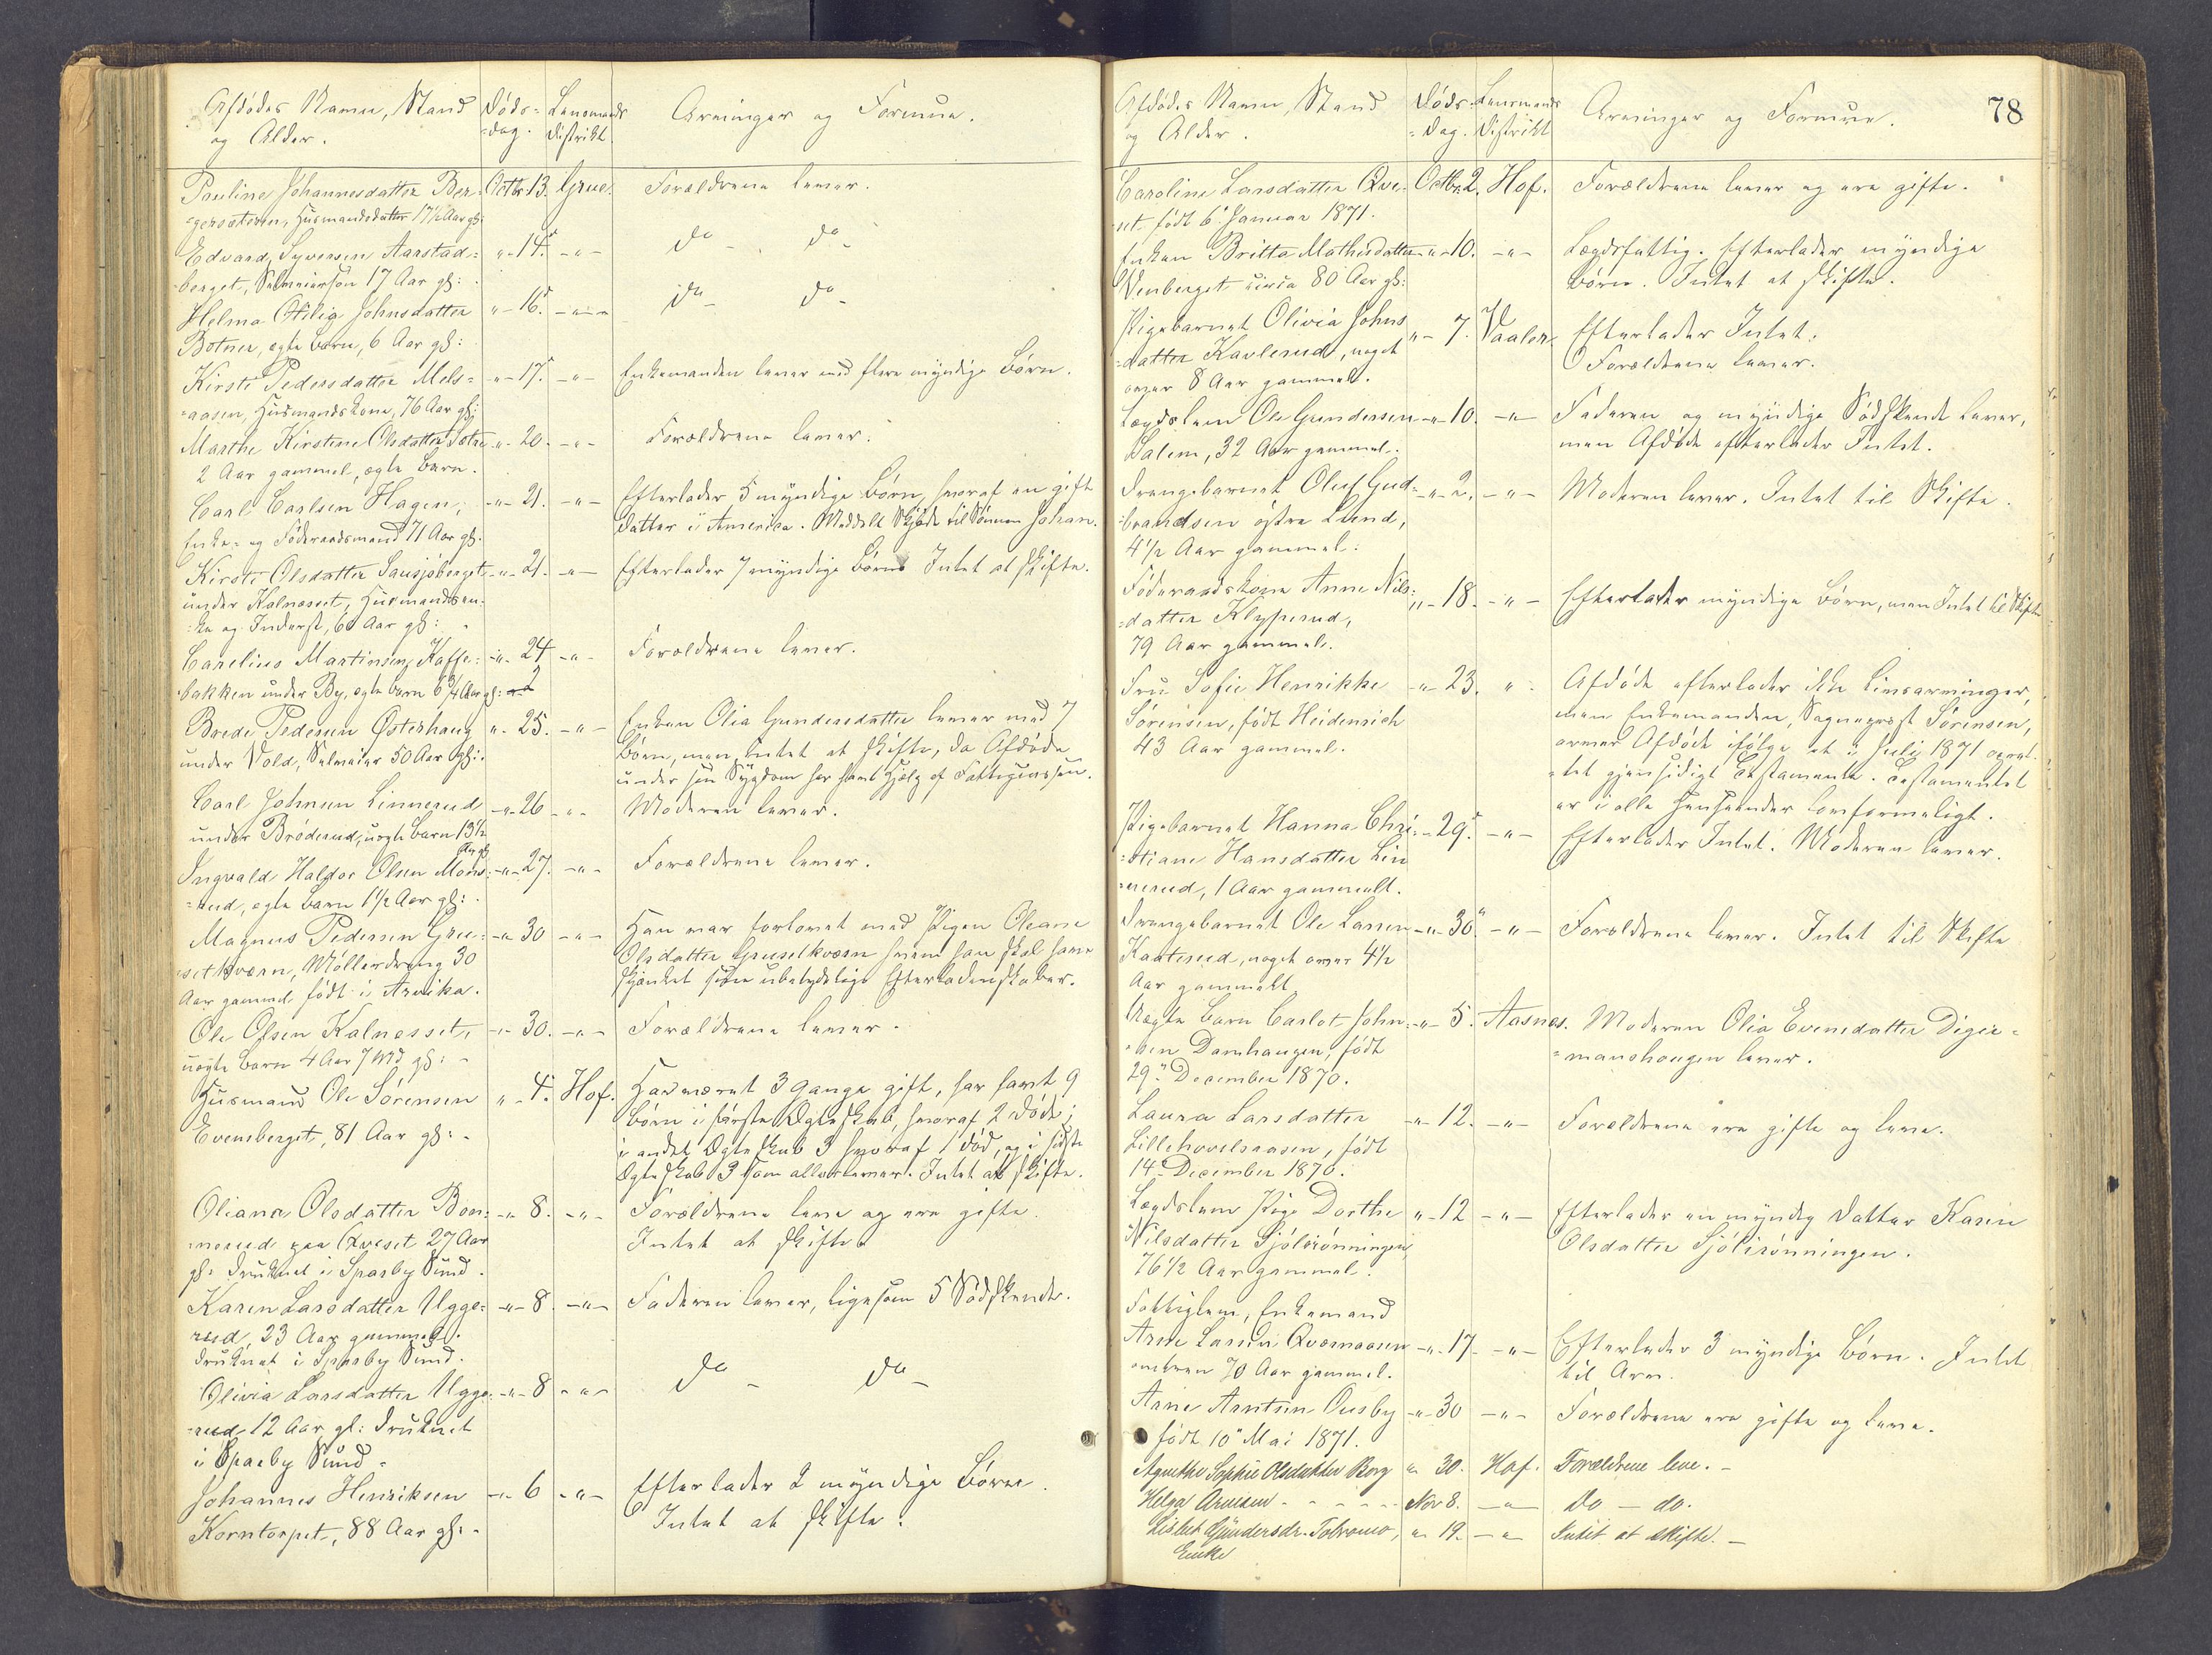 Afdødes Navn, Stand
og Alder.
Døds-
=dag.
Lensmands
Distrikt.
Arvinger og Formue.
Pauline Johannesdatter Ber-
=gersætersen, Husmandsdatter 17½ Aar gl:
Octbr. 13.
Grue.
Forældrene lever.
Edvard Syversen Aarstad=
berget, Selveiersøn 17 Aar gl:
" 14.
do do
Helma Otilie Johnsdatter
Botner, ægte Barn, 6 Aar gl:
" 16.
do do
Kirsti Pedersdatter Mels=
=aasen, Husmandskone, 76 Aar gl:
" 17.
Enkemanden lever med flere myndige Børn.
Marthe Kirstine Olsdatter
2 Aar gammel, ægte Barn.
" 20.
Forældrene lever.
Carl Carlsen Hagen,
Enke- og Føderaadsmand 71 Aar gl.
" 21.
Efterlader 5 myndige Børn, hvoraf en gift
Datter i Amerika. Meddelt Skjøde til Sønnen Johan.
Kirsti Olsdatter Sausjøberget
under Kalnæsset, Husmandsen-
ke og Inderst, 60 Aar gl:
" 21.
Efterlader 7 myndige Børn. Intet at skifte.
Carelius Martinsen Kaffe=
bakken under By, ægte Barn 6¾ Aar gl:
" 24
Forældrene lever.
Brede Pedersen Østerhaug
under Vold, Selveier 50 Aar gl:
" 25.
Enken Olia Gundersdatter lever med 7
Børn, men Intet at skifte, da Afdøde
under sin Sygdom har havt Hjælp af Fattigvæsen.
Carl Johnsen Linnerud
under Brøderud, uægte Barn 13½
Aar gl
" 26
Moderen lever.
Ingvald Haldor Olsen Mons-
=rud, ægte Barn 1½ Aar gl:
" 27.
Forældrene lever.
Magnus Pedersen Grue=
=setkværn, Møllerdreng 30
Aar gammel født i Arvika.
" 30
Han var forlovet med Pigen Oleane
Olsdatter Gruesetkværn hvem han skal have
skjænket sine ubetydelige Efterladenskaber.
Ole Olsen Kalnæsset,
uægte Barn 4 Aar 7 Md gl:
" 30.
Forældrene lever.
Husmand Ole Sørensen
Evensberget, 81 Aar gl:
" 4.
Hof.
Har været 3 Gange gift, har havt 9
Børn i første Ægteskab, hvoraf 2 døde;
i andet Ægteskab 3 hvoraf 1 død, og i sidste
Ægteskab 3 som alle lever. Intet at skifte.
Oliana Olsdatter Bon=
nerud paa Qveset 27 Aar
gl: druknet i Sparby Sund.
" 8.
Forældrene leve og ere gifte.
Intet at skifte
Karen Larsdatter Ugge=
rud, 23 Aar gammel.
druknet i Sparby Sund.
" 8.
Faderen lever, ligesom 5 Sødskende.
Olivia Larsdatter Ugge=
rud 12 Aar gl: druknet
i Sparby Sund.
" 8
do do
Johannes Henriksen
Korntorpet, 88 Aar gl:
" 6
Efterlader 2 myndige Børn.
Intet at skifte.
78
Afdødes Navn, Stand
og Alder.
Døds-
=dag.
Lensmands
Distrikt
Arvinger og Formue.
Caroline Larsdatter Qve=
set født 6' Januar 1871.
Octbr. 2.
Hof.
Forældrene lever og ere gifte.
Enken Britta Mathisdatter
Venberget circa 80 Aar gl:
" 10.
Lægdsfattig. Efterlader myndige
Børn. Intet at skifte.
Pigebarnet Olivia Johns
=datter Kavlerud, noget
over 8 Aar gammel.
" 7.
Vaaler
Efterlader Intet.
Forældrene lever.
Lægdslem Ole Gundersen
Salem, 32 Aar gammel.
" 10.
Faderen og myndige Sødskende lever,
men Afdøde efterlader Intet.
Drengebarnet Oluf Gud=
brandsen østre Lund,
4½ Aar gammel.
" 2.
Moderen lever. Intet til Skifte.
Føderaadskone Anne Nils=
=datter Klyperud,
79 Aar gammel.
" 18.
Efterlader myndige Børn, men Intet til Skifte
Fru Sofie Henrikke
Sørensen, født Heidenrich
43 Aar gammel.
" 23.
Afdøde efterlader ikke Livsarvinger,
men Enkemanden, Sognepræst Sørensen,
arver Afdøde ifølge et 3 Juli 1871 opret=
=tet gjensidigt Testamente. Testamentet
er i alle Henseender lovformeligt.
Pigebarnet Hanna Chri=
=stiane Hansdatter Lin
nerud, 1 Aar gammelt.
" 29.
Efterlader Intet. Moderen lever.
Drengebarnet Ole Larsen
Kaaterud, noget over 4½
Aar gammelt
" 30.
Forældrene lever. Intet til Skifte
Uægte Barn Carlot John=
sen Damhaugen, født
29" December 1870.
" 5.
Aasnes.
Moderen Olia Evensdatter Diger=
=manshougen lever.
Laura Larsdatter
Lillehovelsaasen, født
14" December 1870.
" 12.
Forældrene ere gifte og leve.
Lægdslem Pige Dorthe
Nilsdatter Sjølirønningen
76½ Aar gammel.
" 12
Efterlader en myndig Datter Karen
Olsdatter Sjølirønningen.
Fattiglem, Enkemand
Arne Larsen Qværnaasen
omtren 70 Aar gammel.
" 17.
Efterlader 3 myndige Børn. Intet
til Arv.
Arne Arntsen Ousby
født 10" Mai 1871.
" 30
Forældrene ere gifte og leve.
Agnethe Sophie Olsdatter Berg
" 30.
Hof.
Forældrene leve. -
Helga Arnesen
Nov 8.
Do - do.
Lisbet Gundersdr. Tobromo,
Enke
" 19.
Intet at skifte. -